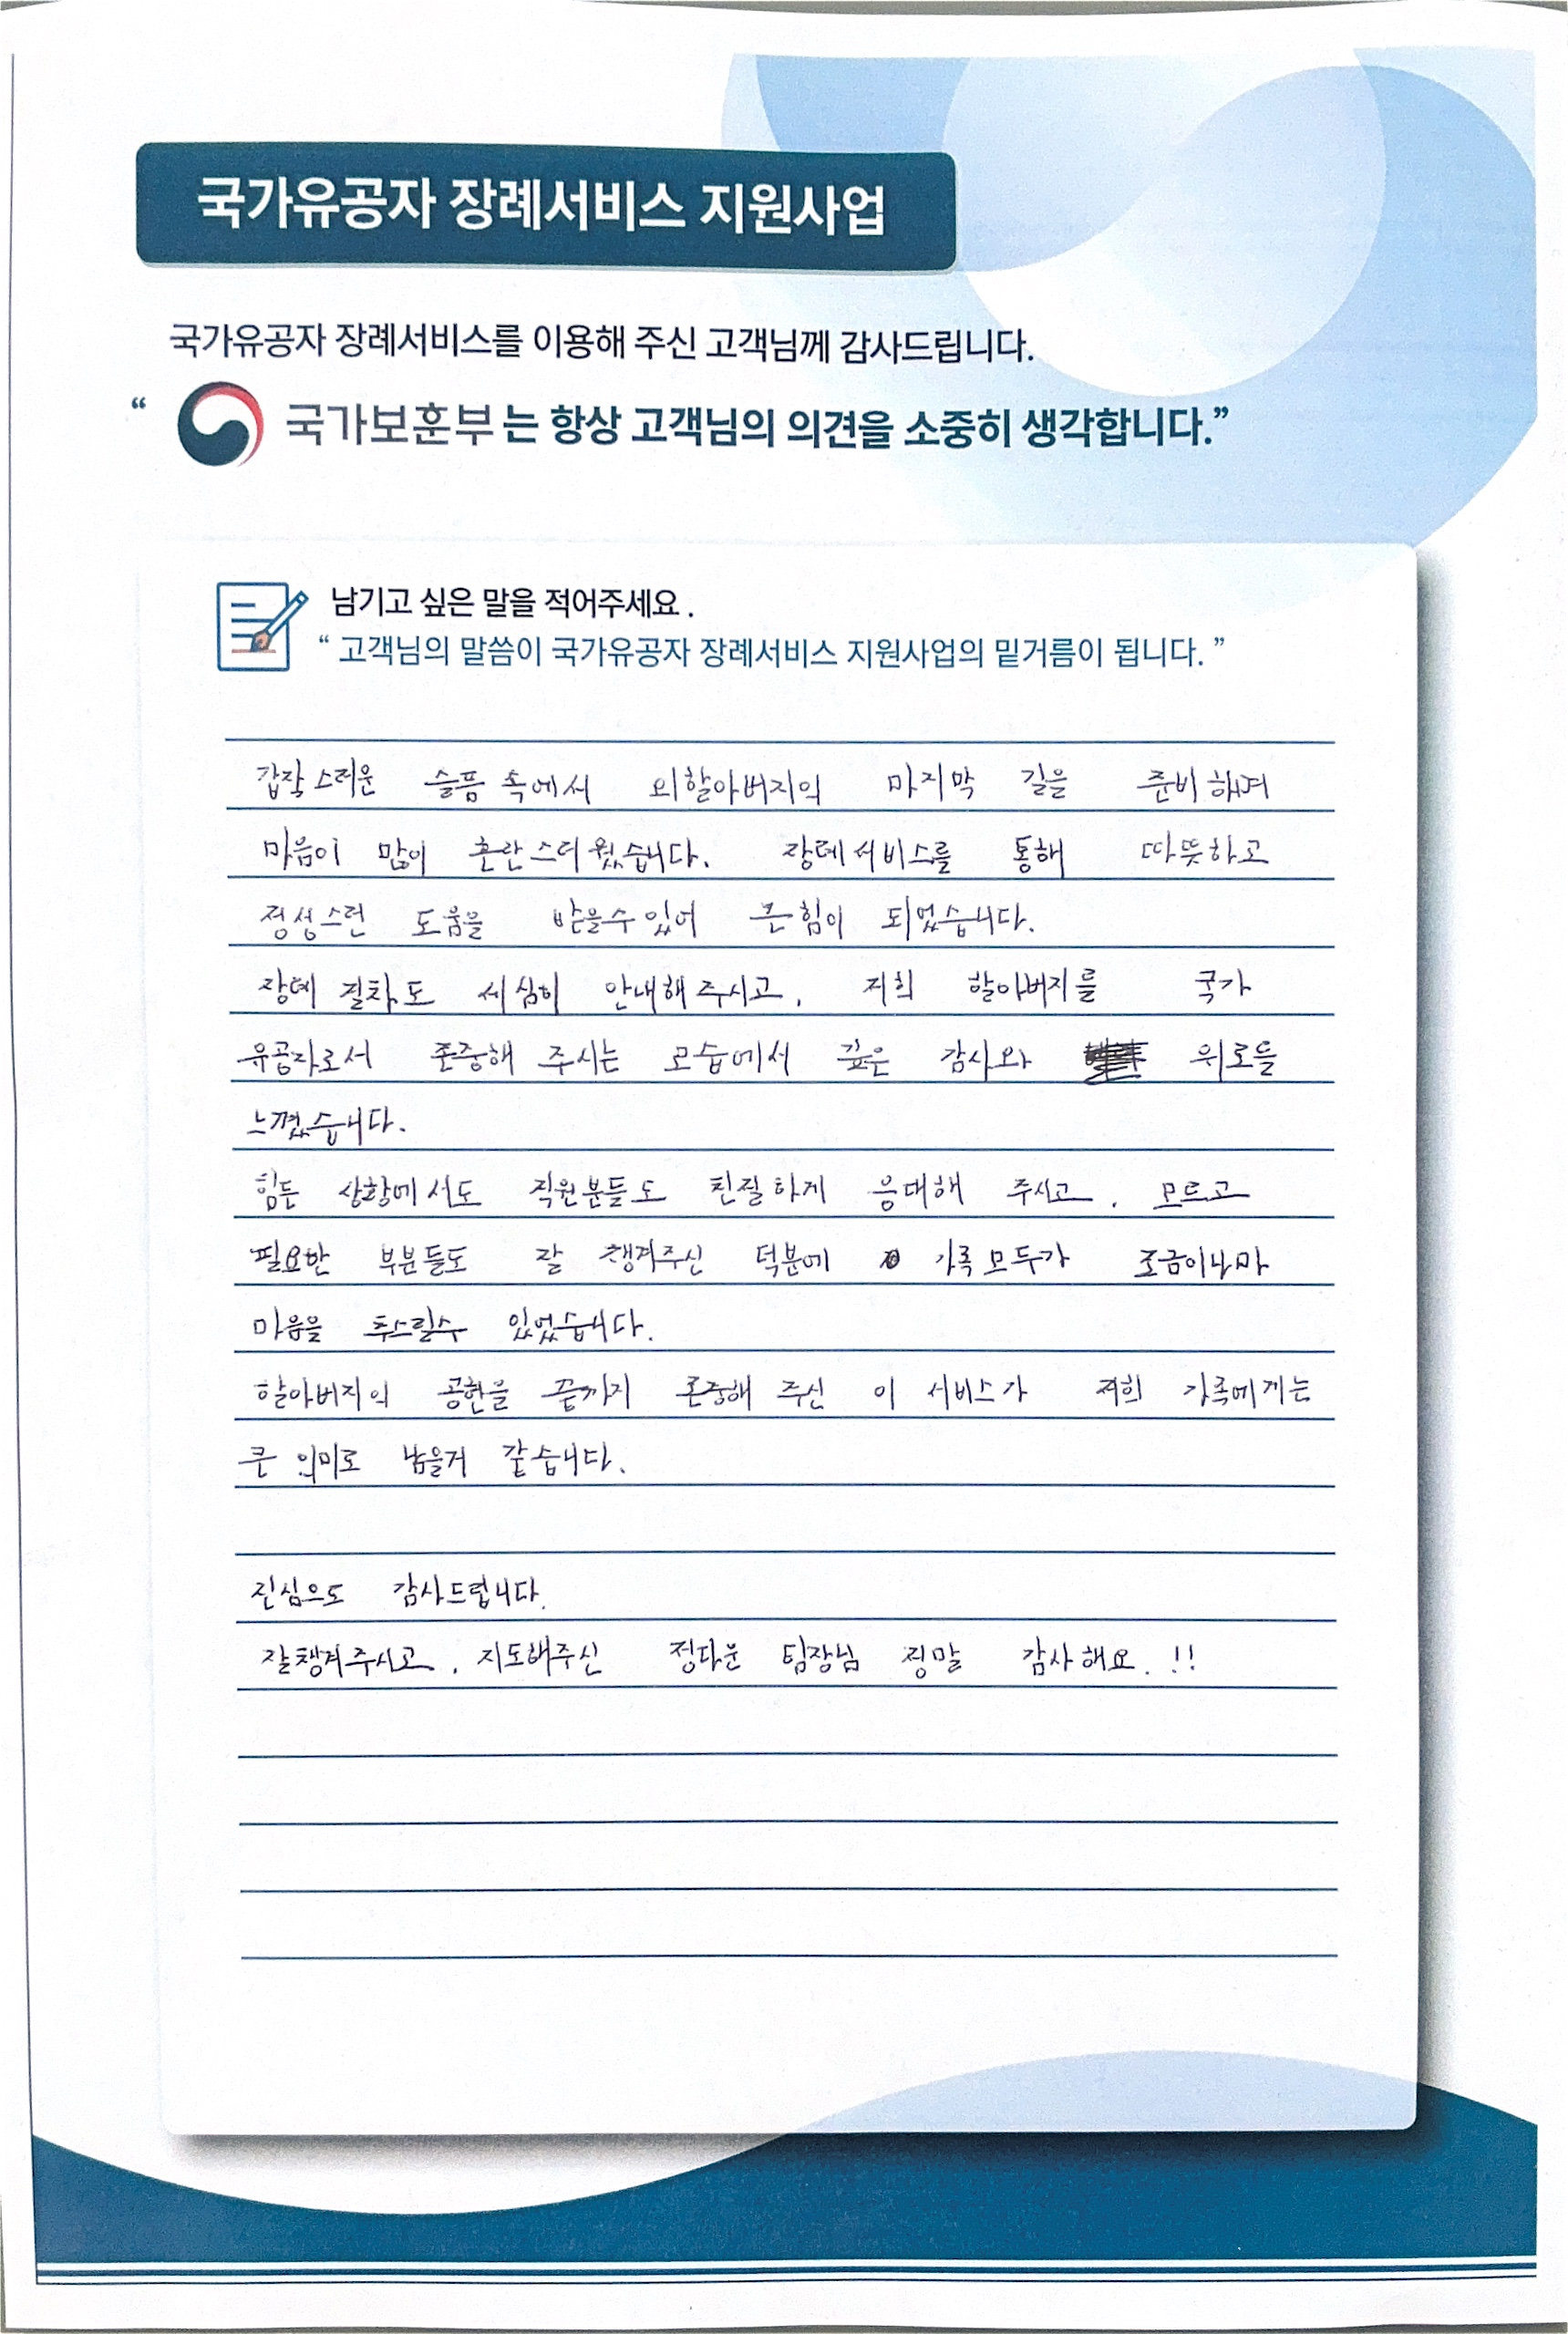 국가유공자 장례서비스 지원사업
국가유공자 장례서비스를 이용해 주신 고객님께 감사드립니다.
“ 국가보훈부 는 항상 고객님의 의견을 소중히 생각합니다.”
남기고 싶은 말을 적어주세요 .
“ 고객님의 말씀이 국가유공자 장례서비스 지원사업의 밑거름이 됩니다. ”
갑작스러운 슬픔 속에서 외할아버지의 마지막 길을 준비하며
마음이 많이 혼란스러웠습니다. 장례서비스를 통해 따뜻하고
정성스런 도움을 받을수있어 큰힘이 되었습니다.
장례 절차도 세심히 안내해주시고, 저희 할아버지를 국가
유공자로서 존중해 주시는 모습에서 깊은 감사와 위로를
느꼈습니다.
힘든 상황에서도 직원분들도 친절하게 응대해 주시고, 모르고
필요한 부분들도 잘 챙겨주신 덕분에 가족모두가 조금이나마
마음을 추스릴수 있었습니다.
할아버지의 공헌을 끝까지 존중해 주신 이 서비스가 저희 가족에게는
큰 의미로 남을거 같습니다.
진심으로 감사드립니다.
잘챙겨주시고, 지도해주신 정다운 팀장님 정말 감사해요.!!